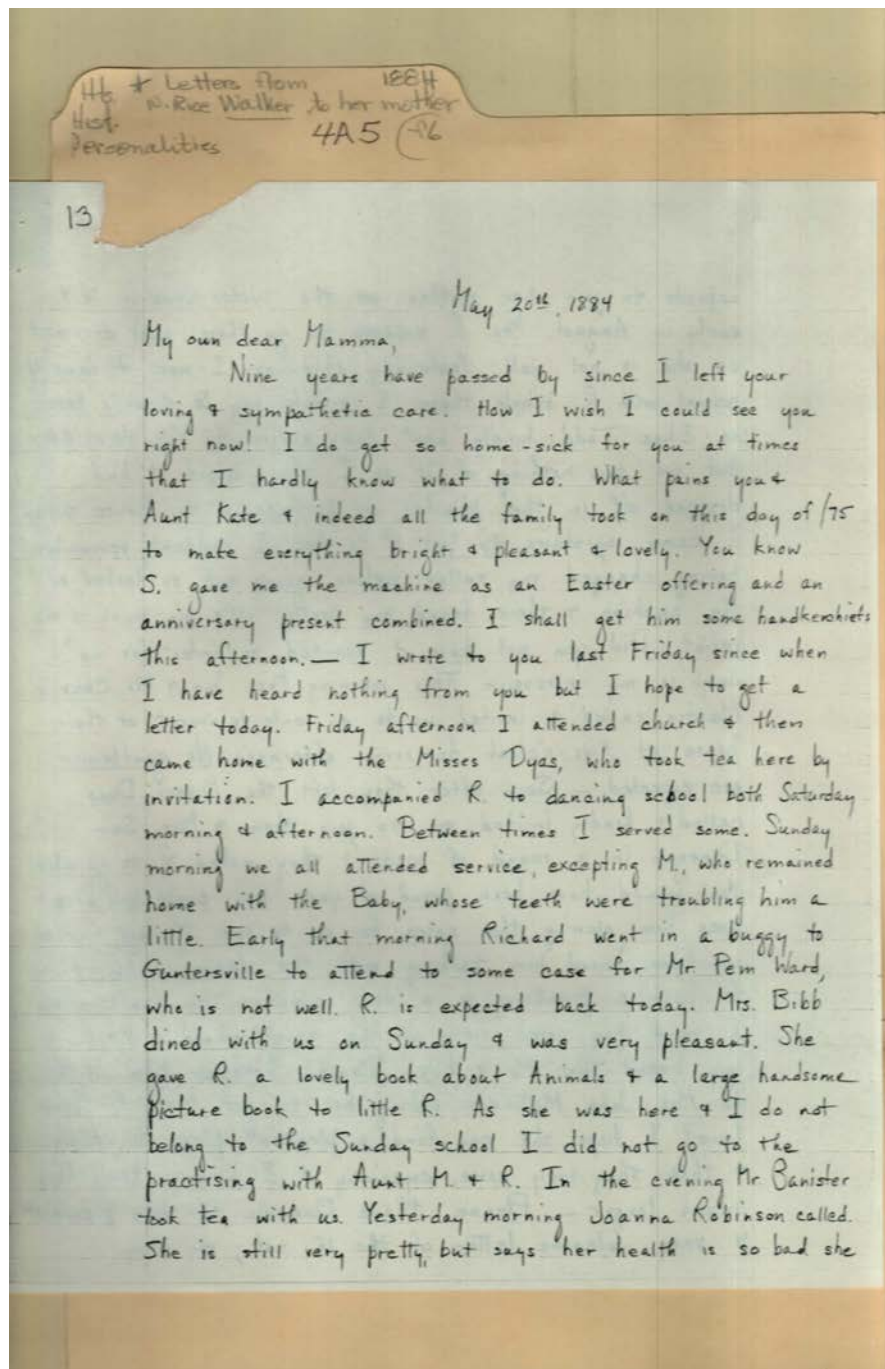 Hist. * Letters from 1884
N. Rice Walker to her mother
Hist.
Personalities 4A5 f6
13
May 20th, 1884
My own dear Mamma,
Nine years have passed by since I left your
loving & sympathetic care. How I wish I could see you
right now! I do get so home-sick for you at times
that I hardly know what to do. What pains you &
Aunt Kate & indeed all the family took on this day of /75
to make everything bright & pleasant & lovely. You know
S. gave me the machine as an Easter offering and an
anniversary present combined. I shall get him some handkerchiefs
this afternoon. — I wrote to you last Friday since when
I have heard nothing from you but I hope to get a
letter today. Friday afternoon I attended church & then
came home with the Misses Dyas, who took tea here by
invitation. I accompanied R. to dancing school both Saturday
morning & afternoon. Between times I served some. Sunday
morning we all attended service, excepting M., who remained
home with the Baby, whose teeth were troubling him a
little. Early that morning Richard went in a buggy to
Guntersville to attend to some case for Mr. Pem Ward,
who is not well. R. is expected back today. Mrs. Bibb
dined with us on Sunday & was very pleasant. She
gave R. a lovely book about Animals & a large handsome
picture book to little R. As she was here & I do not
belong to the Sunday school I did not go to the
practising with Aunt M. & R. In the evening Mr. Banister
took tea with us. Yesterday morning Joanna Robinson called.
She is still very pretty, but says her health is so bad she